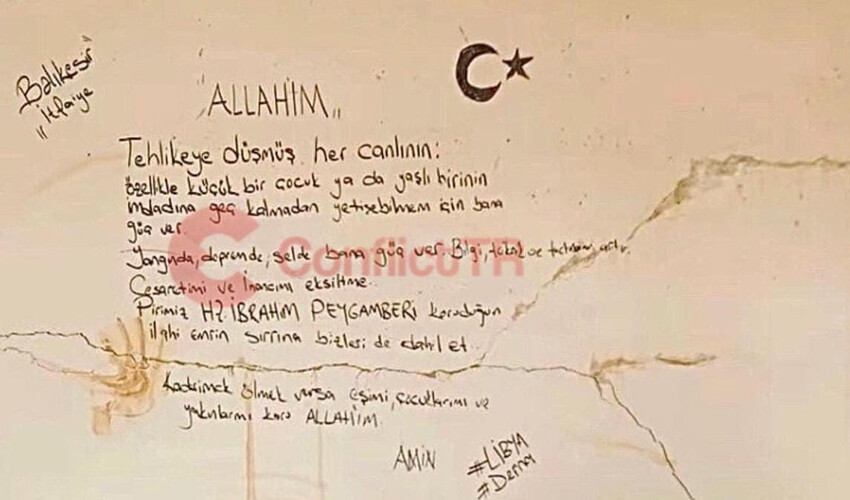 Balıkesir
"İtfaiye
"ALLAHIM"
Tehlikeye düşmüş her canlının:
özellikle küçük bir çocuk ya da yaşlı birinin
imdadına geç kalmadan yetişebilmem için bana
güç ver.
Yangında, depremde, selde bana güç ver. Bilgi, ve artır.
Cesaretimi ve İnancımı eksiltme.
Pirimiz HZ. İBRAHİM PEYGAMBERİ koruduğun
ilahi emrin sırrına bizleri de dahil et..
Kaderimde ölmek varsa eşimi, çocuklarımı ve
yakınlarımı koru ALLAHIM.
AMİN
#LİBYA
#Derna
ConflictTR